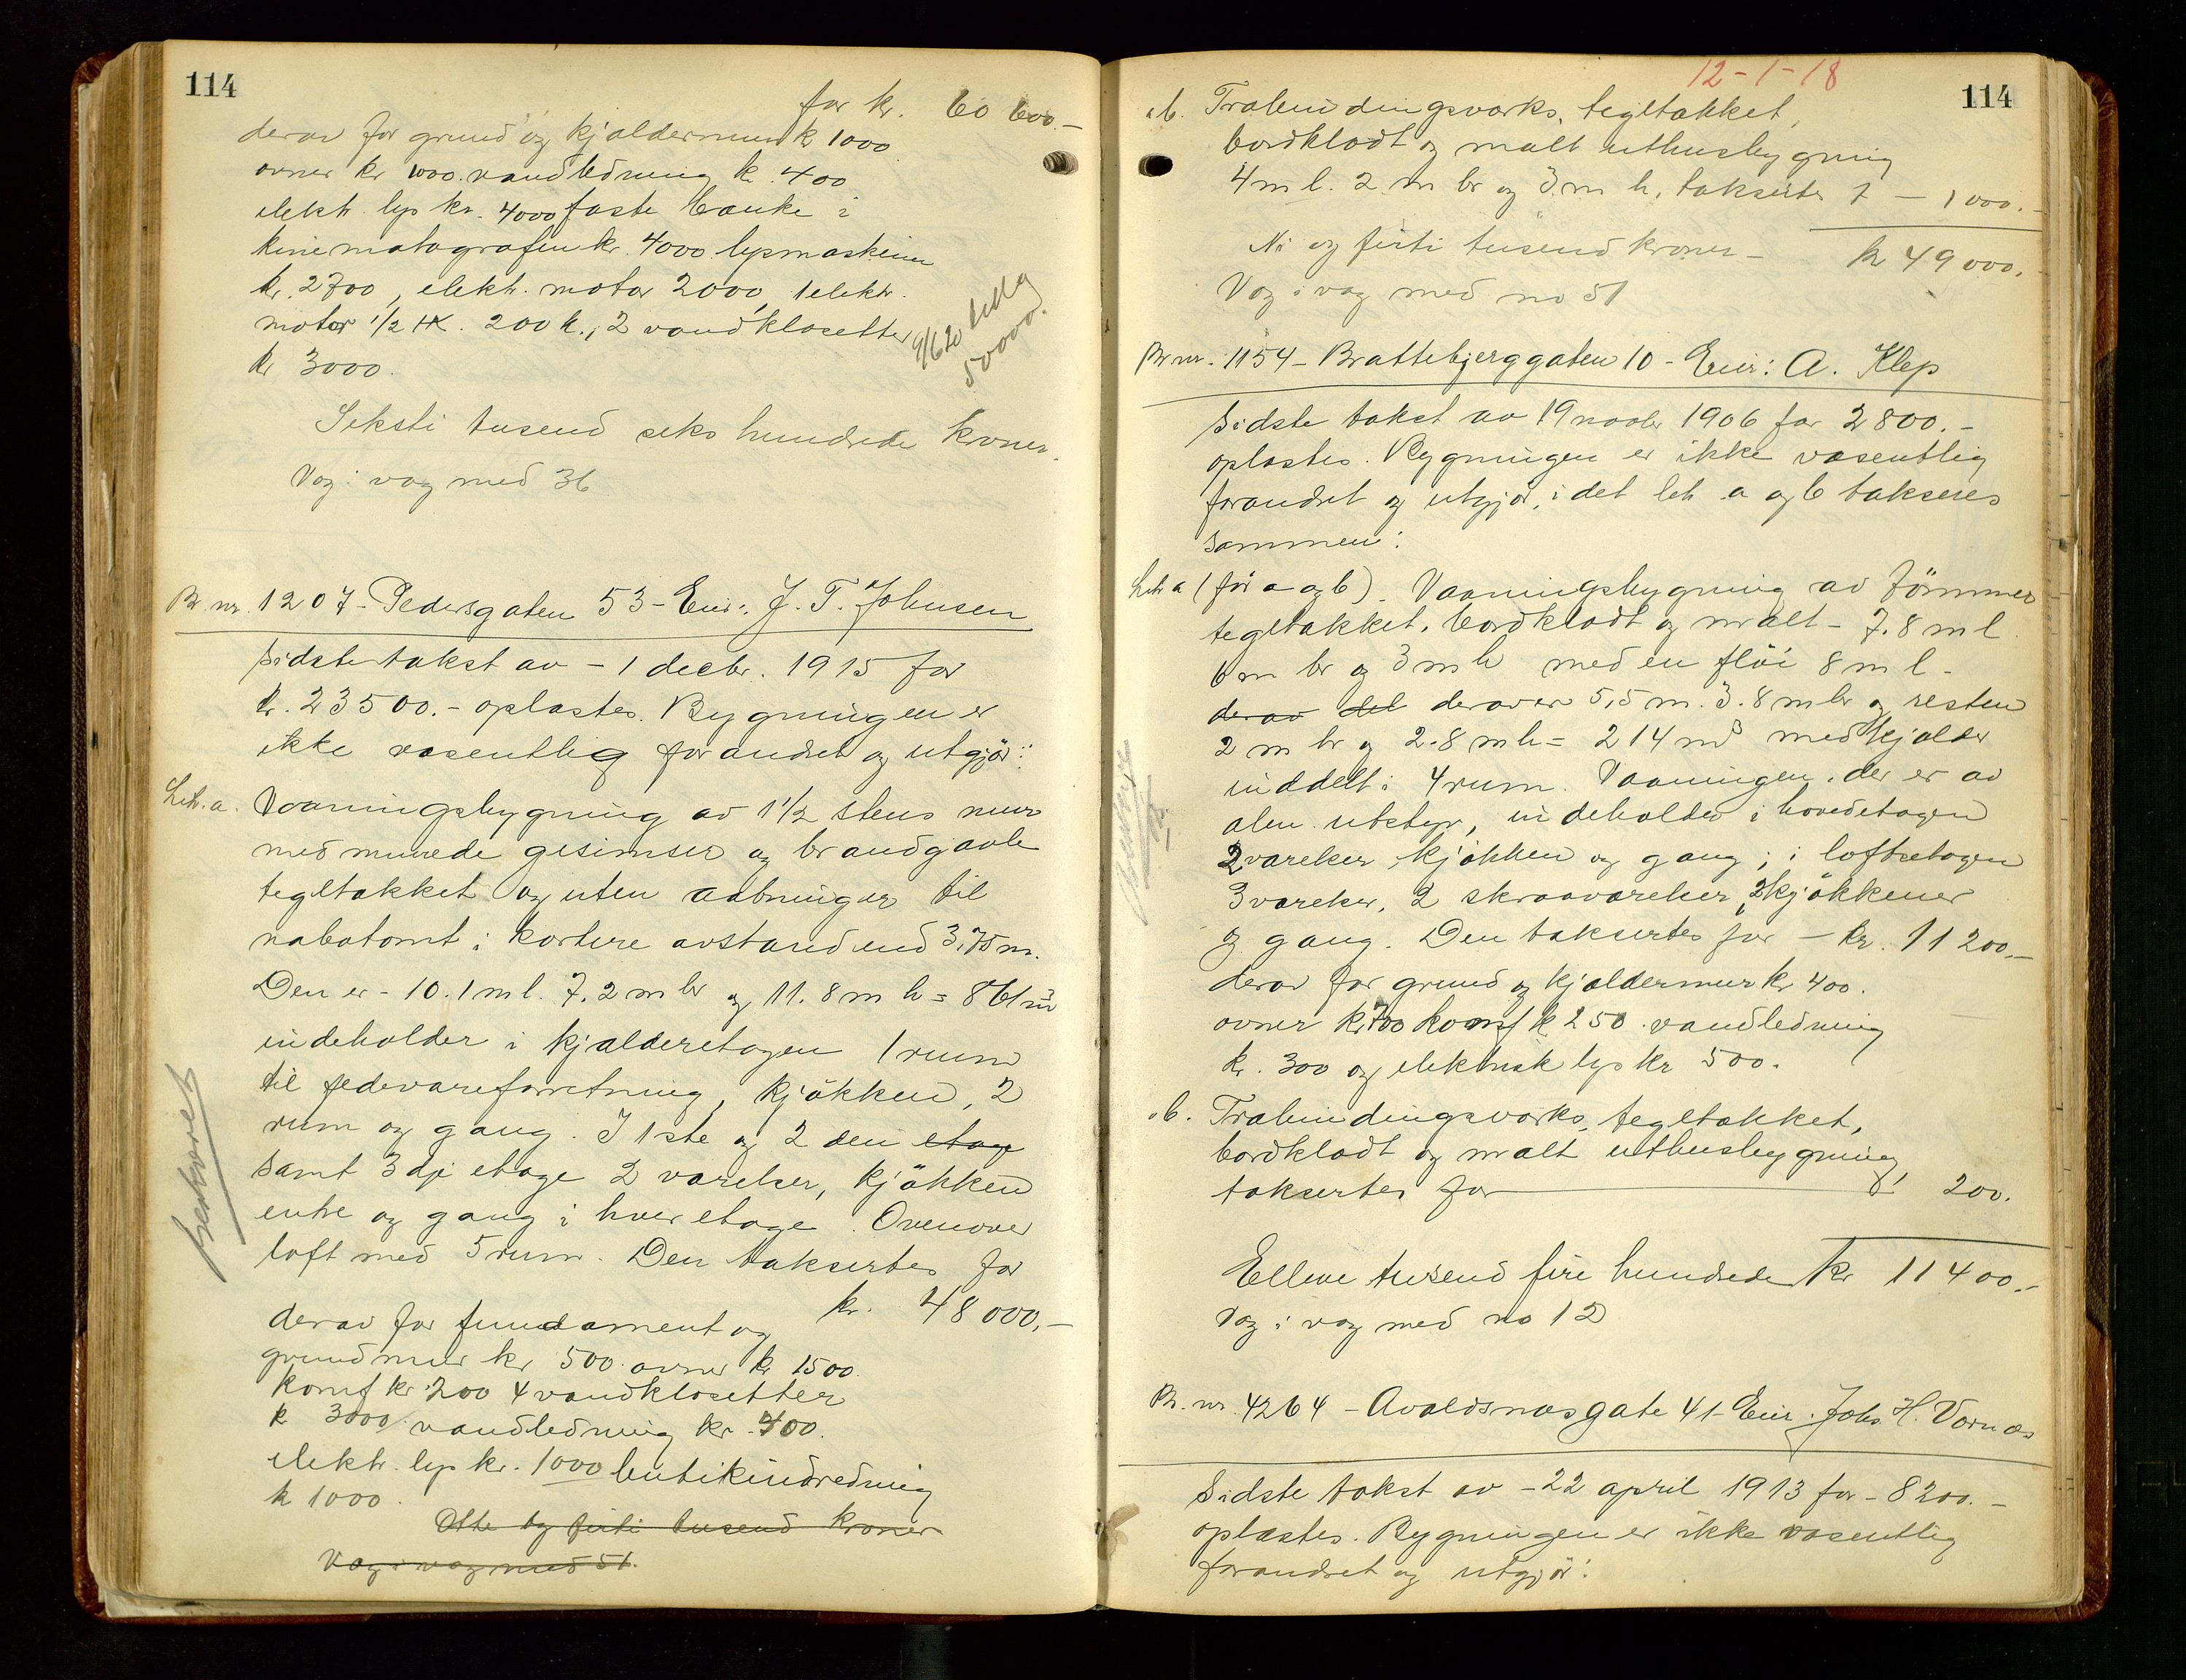 114
for kr. 60 600.-
derav for grund og kjældermur k 1000
ovner kr 1000. vandledning k. 400
elektr. lys kr. 4000 faste bænke i
kinematografen kr. 4000 lysmaskiner
kr. 2700, elektr. motor 2000, 1 elektr.
motor 1/2 HK. 200 k., 2 vandklosetter
kr 3000.
9/6 20
50000.
Seksti tusend seks hundrede kroner.
Vog: vog med 36
Br. nr. 1207 - Pedersgaten 53 - Eier: J. T. Johnsen
Sidste takst av - 1 decbr. 1915 for
kr. 23500.- oplæstes. Bygningen er
ikke væsentlig forandret og utgjør:
Litr. a. Vaaningsbygning av 1 1/2 stens mur
med murede gesimser og brandgavle
tegltækket og uten aabninger til
nabotomt i kortere avstand end 3,75 m.
Den er - 10.1 m l. 7.2 m br og 11.8 m h = 861 m3
indeholder i kjælderetagen 1 rum
til fedevareforretning, kjøkken, 2
rum og gang. I 1ste og 2 den etage
samt 3dje etage 2 værelser, kjøkken
entre og gang i hver etage. Ovenover
loft med 5 rum. Den taksertes for
kr. 48 000.-
derav for fundament og
grundmur kr 500. ovner kr 1500.
komf kr. 200 4 vandklosetter
k 3000. vandledning kr. 400.
elektr. lys kr. 1000 butikindredning
k 1000.
Otte og firti tusend kroner
Vog i vog med 51.
12-1-18
114
"b. Træbindingsverks, tegltækket,
bordklædt og malt uthusbygning
4 m l. 2 m br og 3 m h. taksertes f - 1 000.-
Ni og firti tusend kroner - kr 49 000.-
Vog i vog med no 51
Br nr. 1154 - Brattebjerggaten 10 - Eier: A. Klep
Sidste takst av 19 novbr 1906 for 2800.-
oplæstes. Bygningen er ikke væsentlig
forandret og utgjør, idet litr a og b takseres
sammen:
Litr a (før a og b). Vaaningsbygning av tømmer
tegltækket, bordklædt og malt - 7.8 m l.
6 m br og 3 m h med en fløi 8 m l -
derav del derav er 5,5 m. 3.8 m br og resten
2 m br og 2.8 m h = 214 m3 med kjælder
inddelt i 4 rum. Vaaningen, der er av
alm. utstyr, indeholder i hovedetagen
2 værelser kjøkken og gang; i loftsetagen
3 værelser, 2 skraaværelser, 2 kjøkkener
og gang. Den taksertes for - kr. 11 200.-
derav for grund og kjældermur kr 400.
ovner kr 700 komf k 250. vandledning
kr. 300 og elektrisk lys kr 500.
"b. Træbindingsverks, tegltækket,
bordklædt og malt uthusbygning,
taksertes for 200.
Elleve tusend fire hundrede kr 11400.-
Vog i vog med no 12
Br. nr. 4264 - Avaldsnæsgate 41 - Eier. Johs. H. Vornæs
Sidste takst av - 22 april 1913 for - 8200.-
oplæstes. Bygningen er ikke væsentlig
forandret og utgjør: